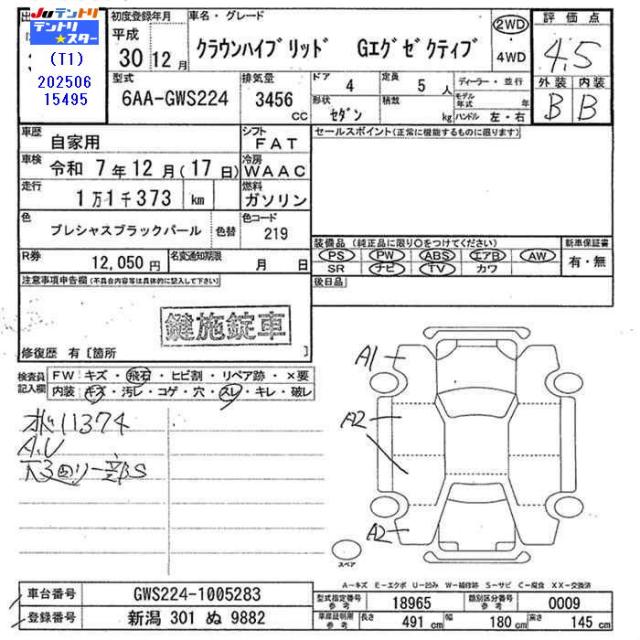 JUテントリ
テントリ★スター
(T1)
202506
15495
初度登録年月 車名・グレード 評価点
平成 30 12月 クラウンハイブリッド Gエグゼクティブ 2WD・4WD 4.5
型式 排気量 ドア 4 定員 5人 ディーラー・並行 外装 内装
6AA-GWS224 3456 CC 形状 セダン 積数 kg モデル年式 年式 ハンドル 左・右 B B
車歴 自家用 シフト FAT セールスポイント(正常に機能するものに限ります)
車検 令和 7年12月(17日) 冷房 WAAC
走行 1万1千373 km 燃料 ガソリン
色 プレシャスブラックパール 色替 色コード 219
装備品(純正品に限り○をつけてください) 新車保証書
R券 12,050円 名変通知期限 月 日 PS PW ABS エアB AW 有・無
SR ナビ TV カワ
注意事項申告欄(不具合内容等は具体的に記入して下さい) 後日品
鍵施錠車
修復歴 有〔箇所 〕
検査員記入欄 FW キズ・飛石・ヒビ割・リペア跡・×要
内装 キズ・汚レ・コゲ・穴・スレ・キレ・破レ
11374
A.U
一部S
A1
A2
A2
スペア
A－キズ E－エクボ U－凹み W－補修跡 S－サビ C－腐食 XX－交換済
車台番号 GWS224-1005283 型式指定番号 参考 18965 類別区分番号 参考 0009
登録番号 新潟 301 ぬ 9882 車庫証明用 参考 長さ 491 cm 幅 180 cm 高さ 145 cm